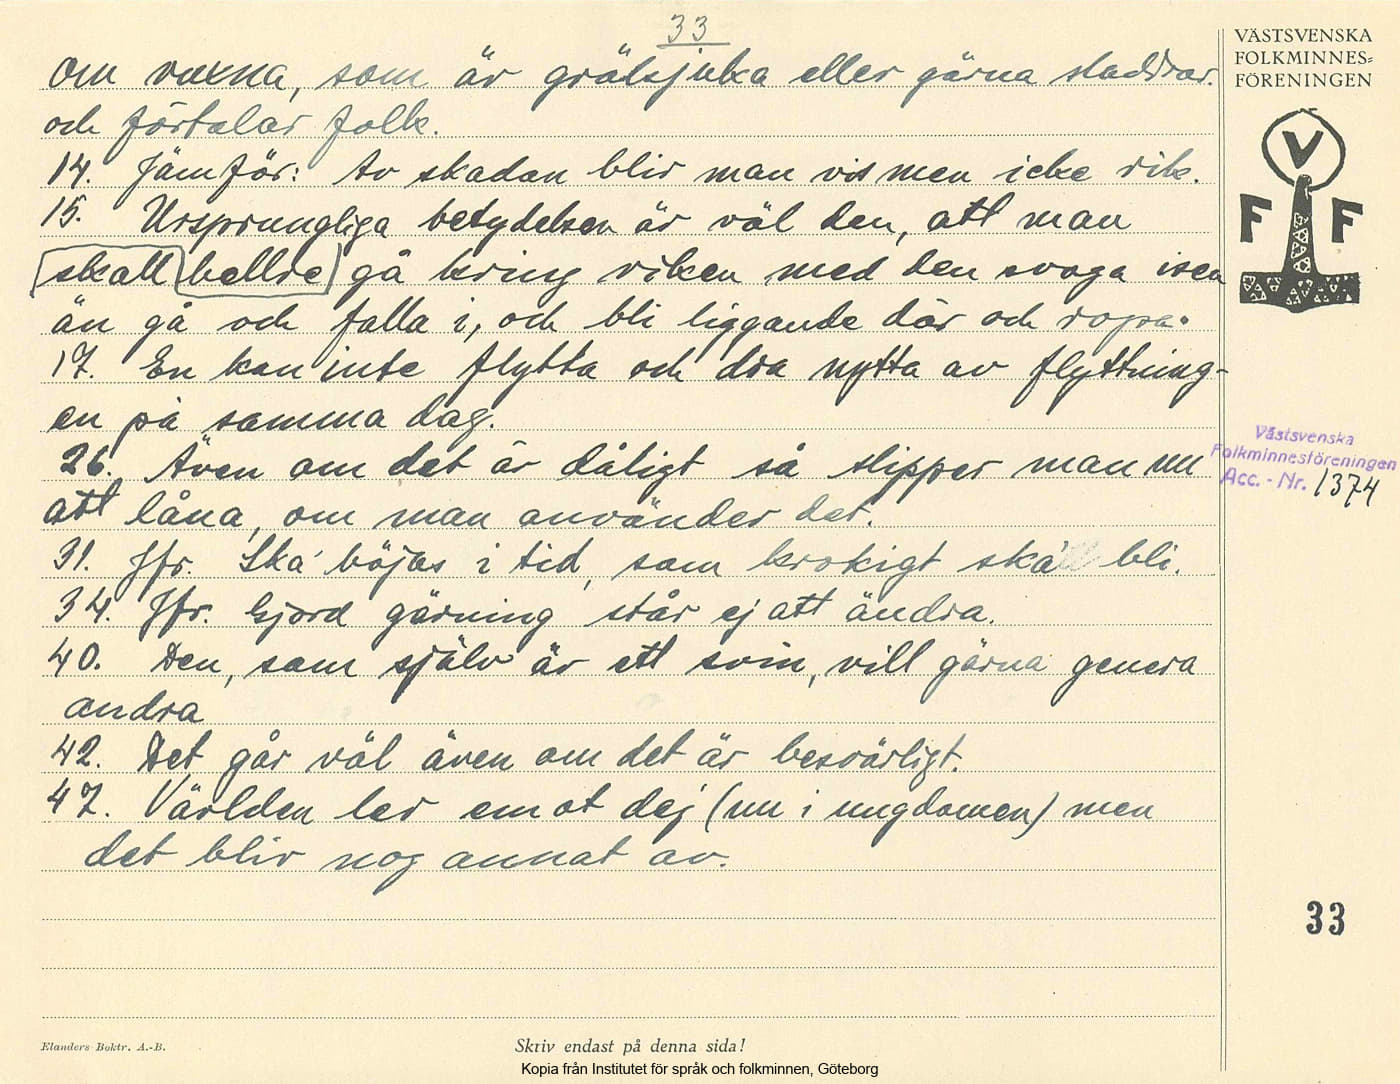 33
om vuxna, som är grälsjuka eller gärna sladdrar
och förtalar folk.
14. Jämför: Av skadan blir man vis men icke rik.
15. Ursprungliga betydelsen är väl den, att man
skall hellre gå kring viken med den svaga isen
än gå och falla i, och bli liggande där och ropa.
17. En kan inte flytta och dra nytta av flyttning-
en på samma dag.
26. Även om det är dåligt så slipper man nu
att låna, om man använder det.
31. Jfr. Ska böjas i tid, som krokigt ska bli.
34. Jfr. Gjord gärning står ej att ändra.
40. Den, som själv är ett svin, vill gärna genera
andra
42. Det går väl även om det är besvärligt.
47. Världen ler emot dej (nu i ungdomen) men
det blir nog annat av.
VÄSTSVENSKA
FOLKMINNES=
FÖRENINGEN
V
F F
Västsvenska
Folkminnesföreningen
Acc. - Nr. 1374
33
Elanders Boktr. A.-B.
Skriv endast på denna sida!
Kopia från Institutet för språk och folkminnen, Göteborg